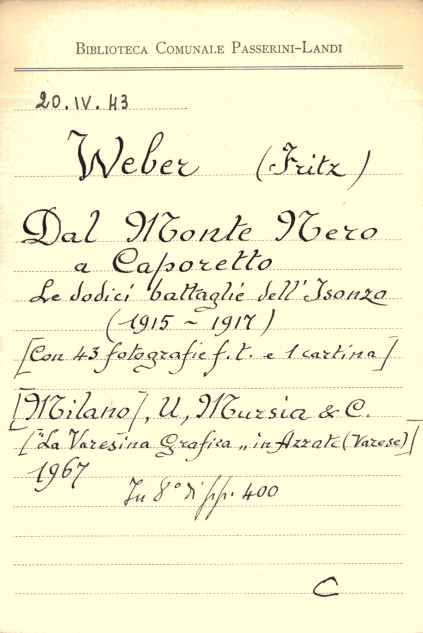 BIBLIOTECA COMUNALE PASSERINI-LANDI
20.IV.43
Weber (Fritz)
Dal Monte Nero
a Caporetto
Le dodici battaglie dell'Isonzo
(1915 ~ 1917)
[Con 43 fotografie f.t. e 1 cartina]
[Milano], U, Mursia & C.
["La Varesina Grafica„ in Azzate (Varese)]
1967
In 8° di pp. 400
C